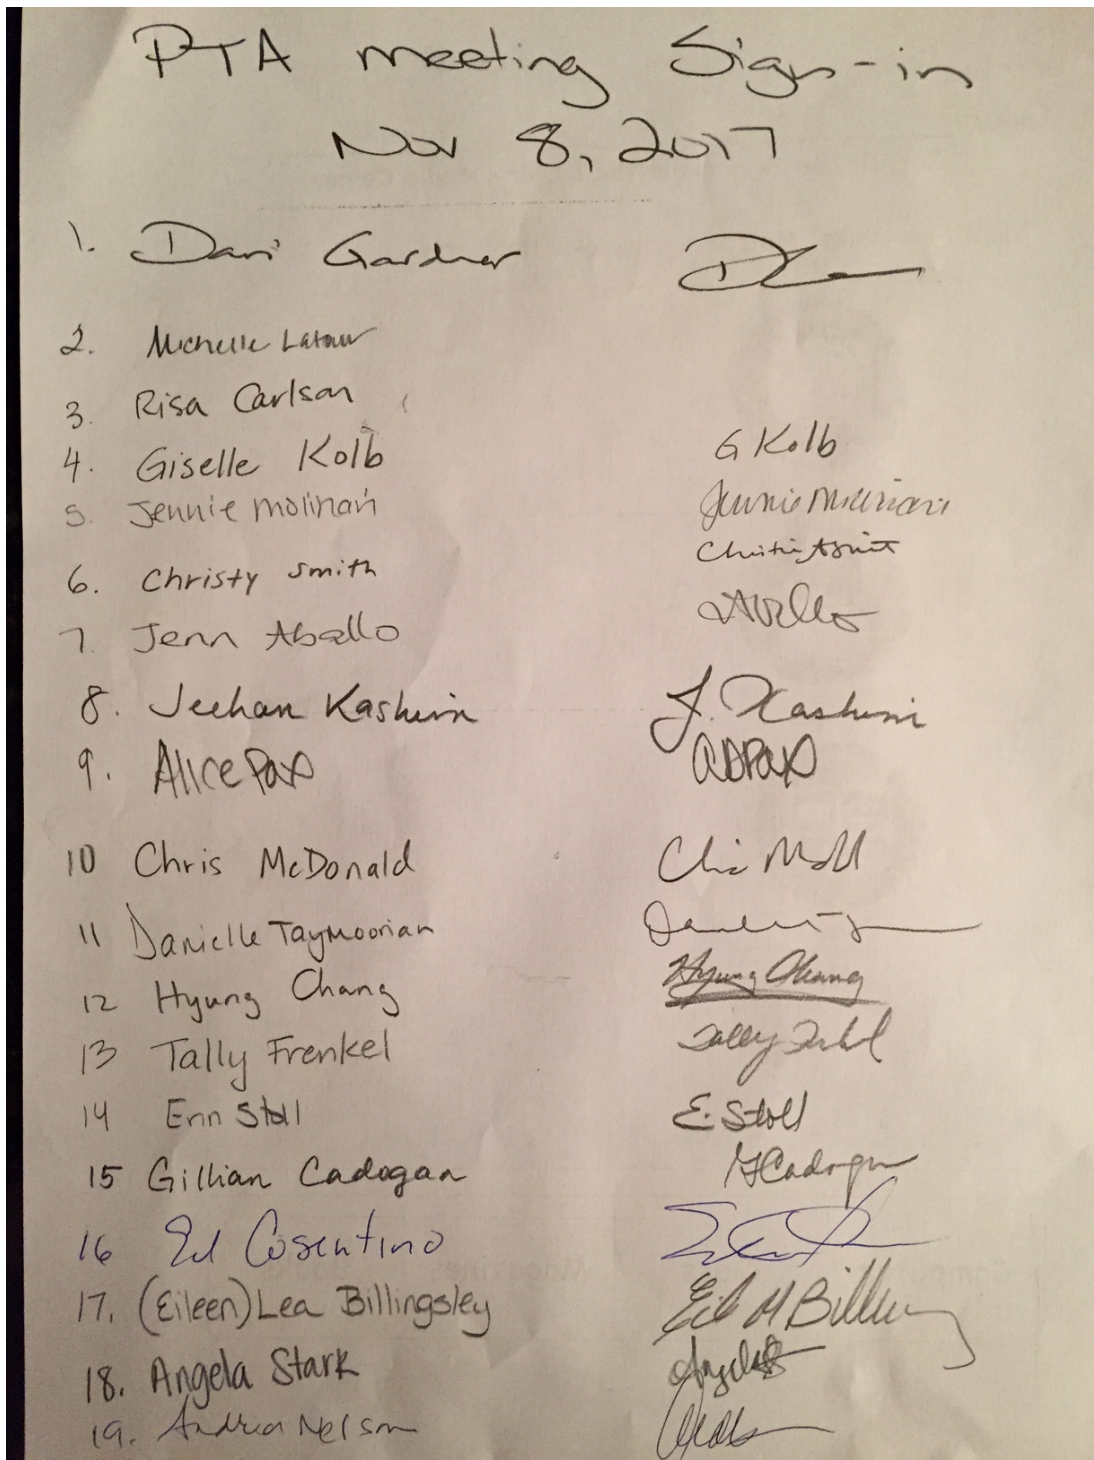 PTA meeting Sign-in
Nov 8, 2017
1. Dani Gardner
2. Michelle Latour
3. Risa Carlson
4. Giselle Kolb G Kolb
5. Jennie Molinari Jennie Molinari
6. Christy Smith
7. Jenn Aballo
8. Jeehan Kashim J. Kashim
9. Alice Pax ADPax
10 Chris McDonald
11 Danielle Taymoorian
12 Hyung Chang Hyung Chang
13 Tally Frenkel Tally
14 Erin Stoll E. Stoll
15 Gillian Cadogan GCadogan
16 Ed Cosentino
17. (Eileen) Lea Billingsley
18. Angela Stark
19. Andrea Nelson